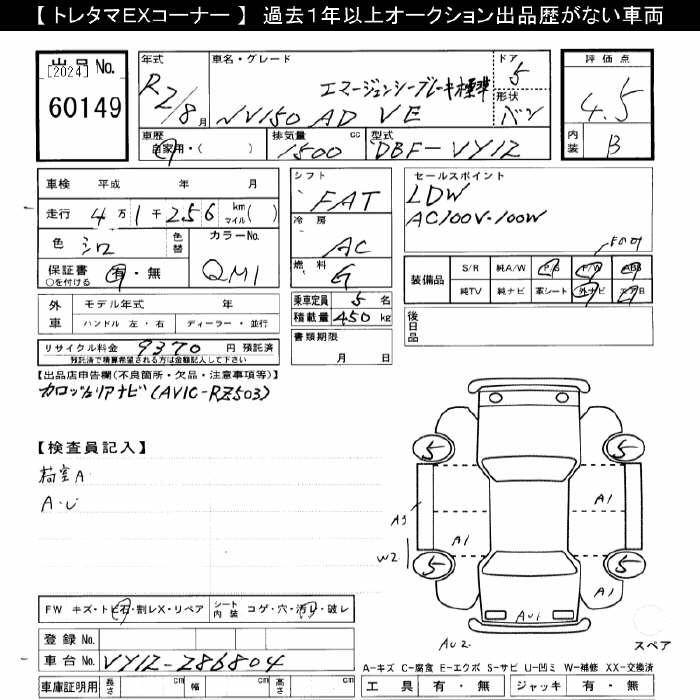 【 トレタマEXコーナー 】 過去1年以上オークション出品歴がない車両
出品 No.
[2024]
60149
年式
R2/8月
車名・グレード
エマージェンシーブレーキ標準
NV150 AD VE
ドア
5
形状
バン
評価点
4.5
内装
B
車歴
自家用・( )
排気量
1500 cc
型式
DBF-VY12
車検 平成 年 月
走行 4万1千256 km マイル( )
色 シロ 色替
カラーNo.
QM1
保証書 ○を付ける 有・無
シフト
FAT
冷房
AC
燃料
G
乗車定員 5 名
積載量 450 kg
書類期限
月 日
セールスポイント
LDW
AC100V-100W
装備品
S/R 純A/W P/S P/W ABS
純TV 純ナビ 革シート 外ナビ エアB
後日品
外車
モデル年式 年
ハンドル 左・右 ディーラー・並行
リサイクル料金 9370 円 預託済
預託済で精算希望される方は金額記入して下さい
【出品店申告欄(不良箇所・欠品・注意事項等)】
カロッツェリアナビ(AVIC-RZ503)
【検査員記入】
荷室A
A・U
5
5
5
5
A3
W2
A1
A1
A1
AU1
AU2
スペア
FW キズ・トビ石・割レX・リペア
シート内装 コゲ・穴・汚レ・破レ
登録 No.
車台 No. VY12-286804
車庫証明用 長さ cm 幅 cm 高さ cm
A-キズ C-腐食 E-エクボ S-サビ U-凹ミ W-補修 XX-交換済
工具 有・無 ジャッキ 有・無